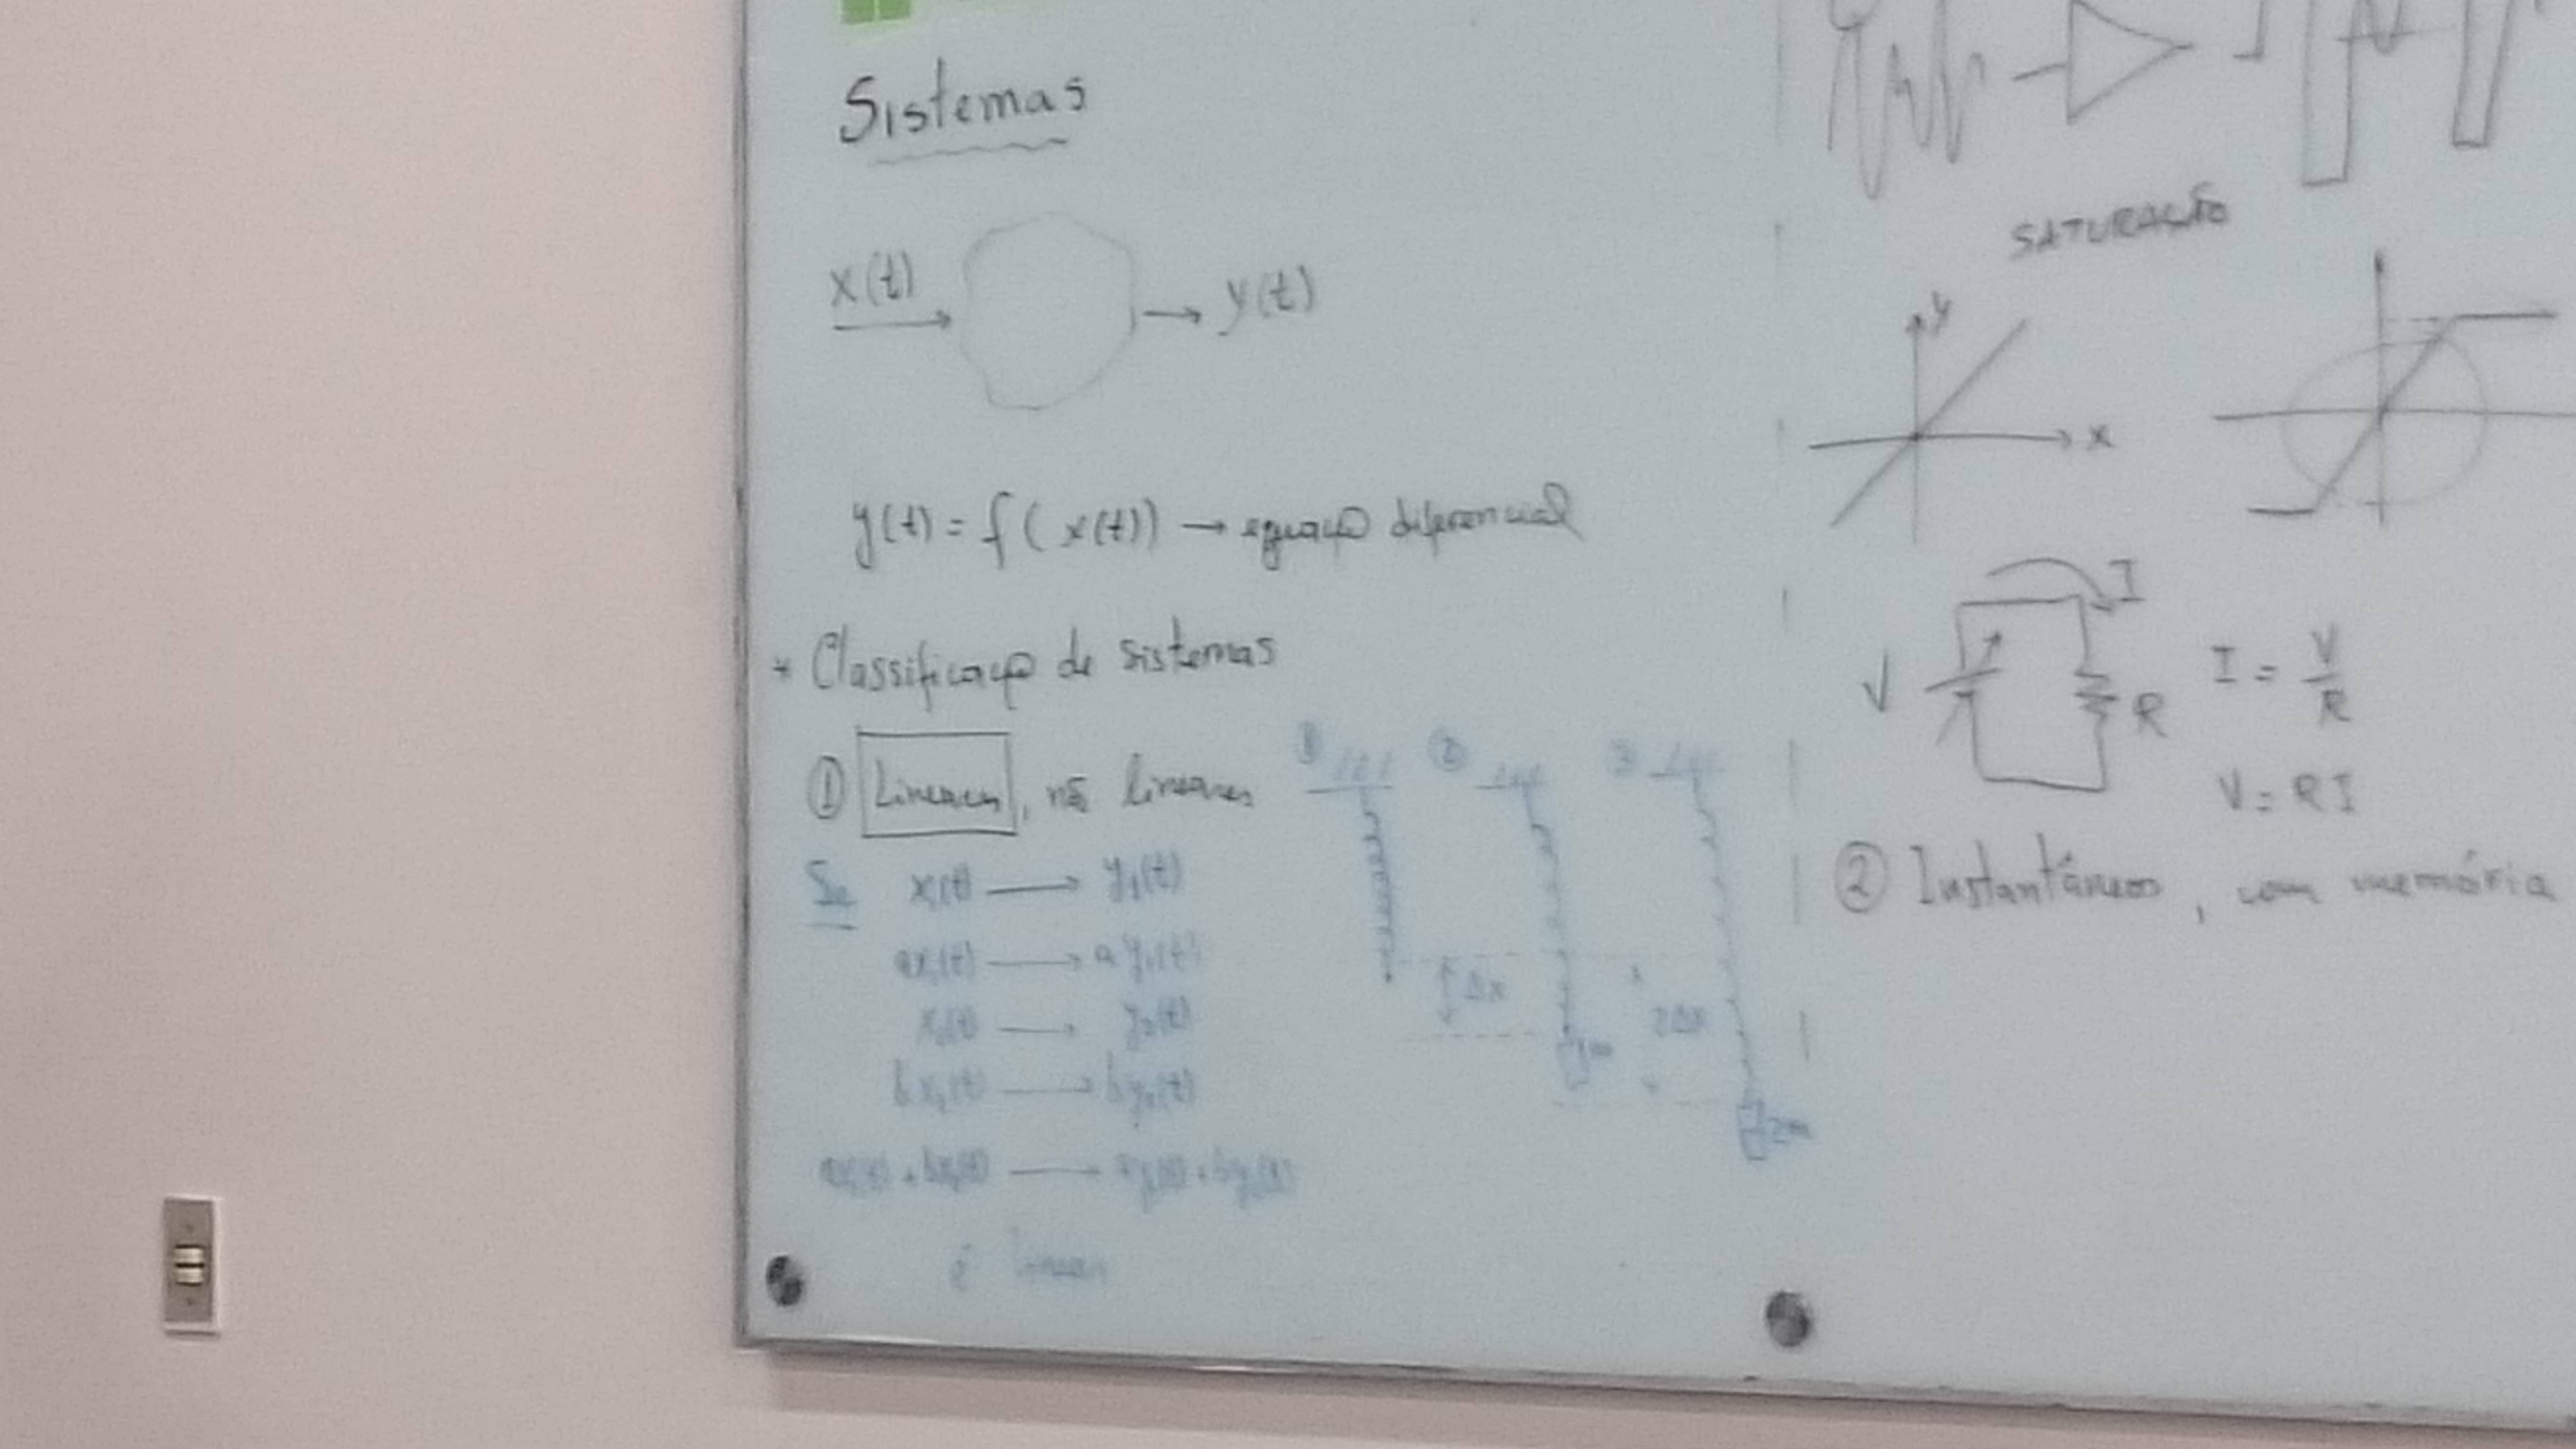 Sistemas
x(t) → y(t)
y(t) = f(x(t)) → equação diferencial
* Classificação de sistemas
① Lineares, não lineares
Se x₁(t) → y₁(t)
ax₁(t) → a y₁(t)
x₂(t) → y₂(t)
bx₂(t) → by₂(t)
ax₁(t) + bx₂(t) → ay₁(t) + by₂(t)
é linear
① ② 3
Δx
2Δx
m
2m
SATURAÇÃO
y
x
I
V
R
I = V/R
V = RI
② Instantâneo, com memória